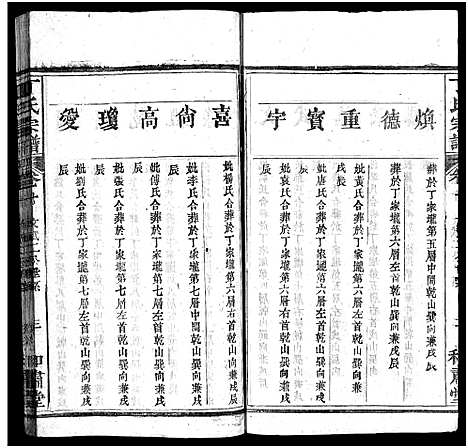 丁氏宗譜
煥
德
重
寶
宇
葬於丁家壠第五層中間乾山巽向兼戌辰
妣黃氏合葬於丁家壠第六層左首乾山巽向兼
戌辰
妣唐氏合葬於丁家壠第六層左首乾山巽向兼戌
辰
喜
尙
高
瓊
愛
妣楊氏合葬於丁家壠第六層右首乾山巽向兼戌
辰
妣李氏合葬於丁家壠第七層中間乾山巽向兼戌
辰
妣傅氏合葬於丁家壠第七層左首乾山巽向兼戌
辰
妣張氏合葬於丁家壠第七層左首乾山巽向兼戌
辰
妣劉氏合葬於丁家壠第七層左首乾山巽向兼戌
辰
丁氏宗譜
卷十
肅堂